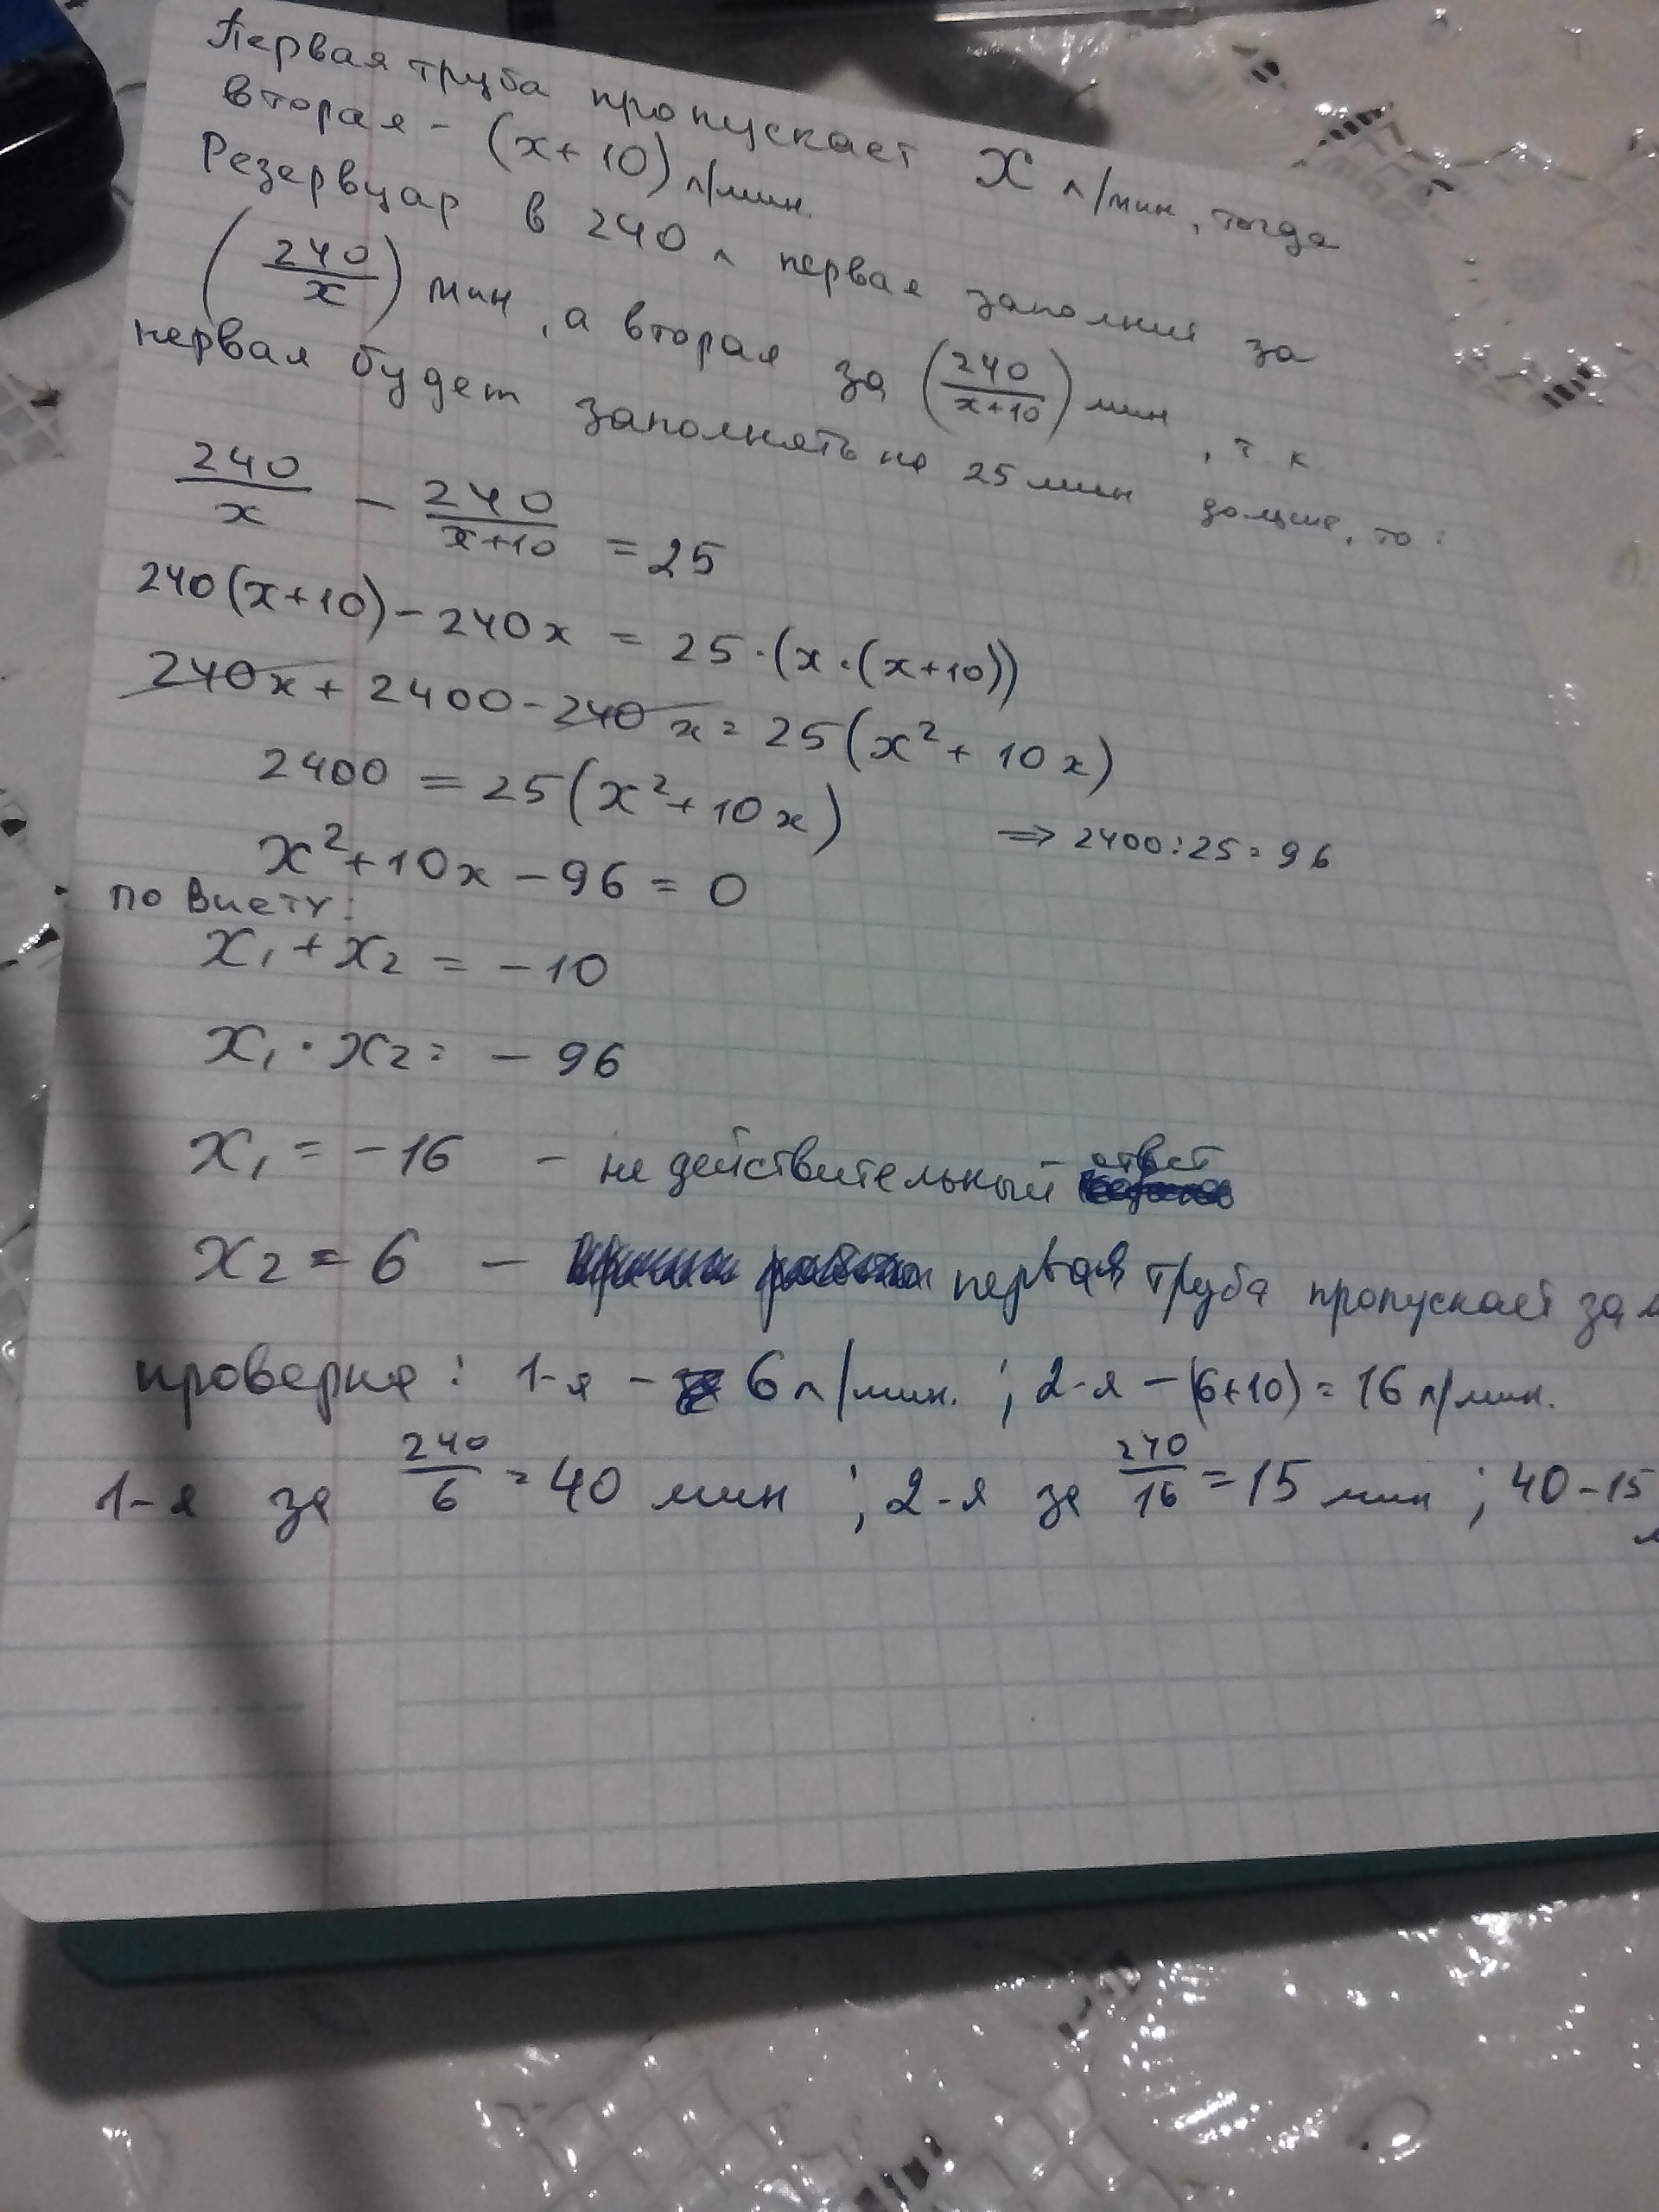 Первая труба пропускает x л/мин, тогда
вторая - (x+10) л/мин.
Резервуар в 240 л первая заполнит за
(240/x) мин, а вторая за (240/(x+10)) мин, т.к
первая будет заполнять на 25 мин дольше, то:
240/x - 240/(x+10) = 25
240(x+10) - 240x = 25·(x·(x+10))
240x + 2400 - 240x = 25(x² + 10x)
2400 = 25(x² + 10x) ⇒ 2400:25=96
x² + 10x - 96 = 0
по Виету:
x₁ + x₂ = -10
x₁ · x₂ = -96
x₁ = -16 - не действительный ответ
x₂ = 6 - первая труба пропускает за
проверка: 1-я - 6 л/мин. ; 2-я - (6+10) = 16 л/мин.
1-я за 240/6 = 40 мин ; 2-я за 240/16 = 15 мин ; 40-15